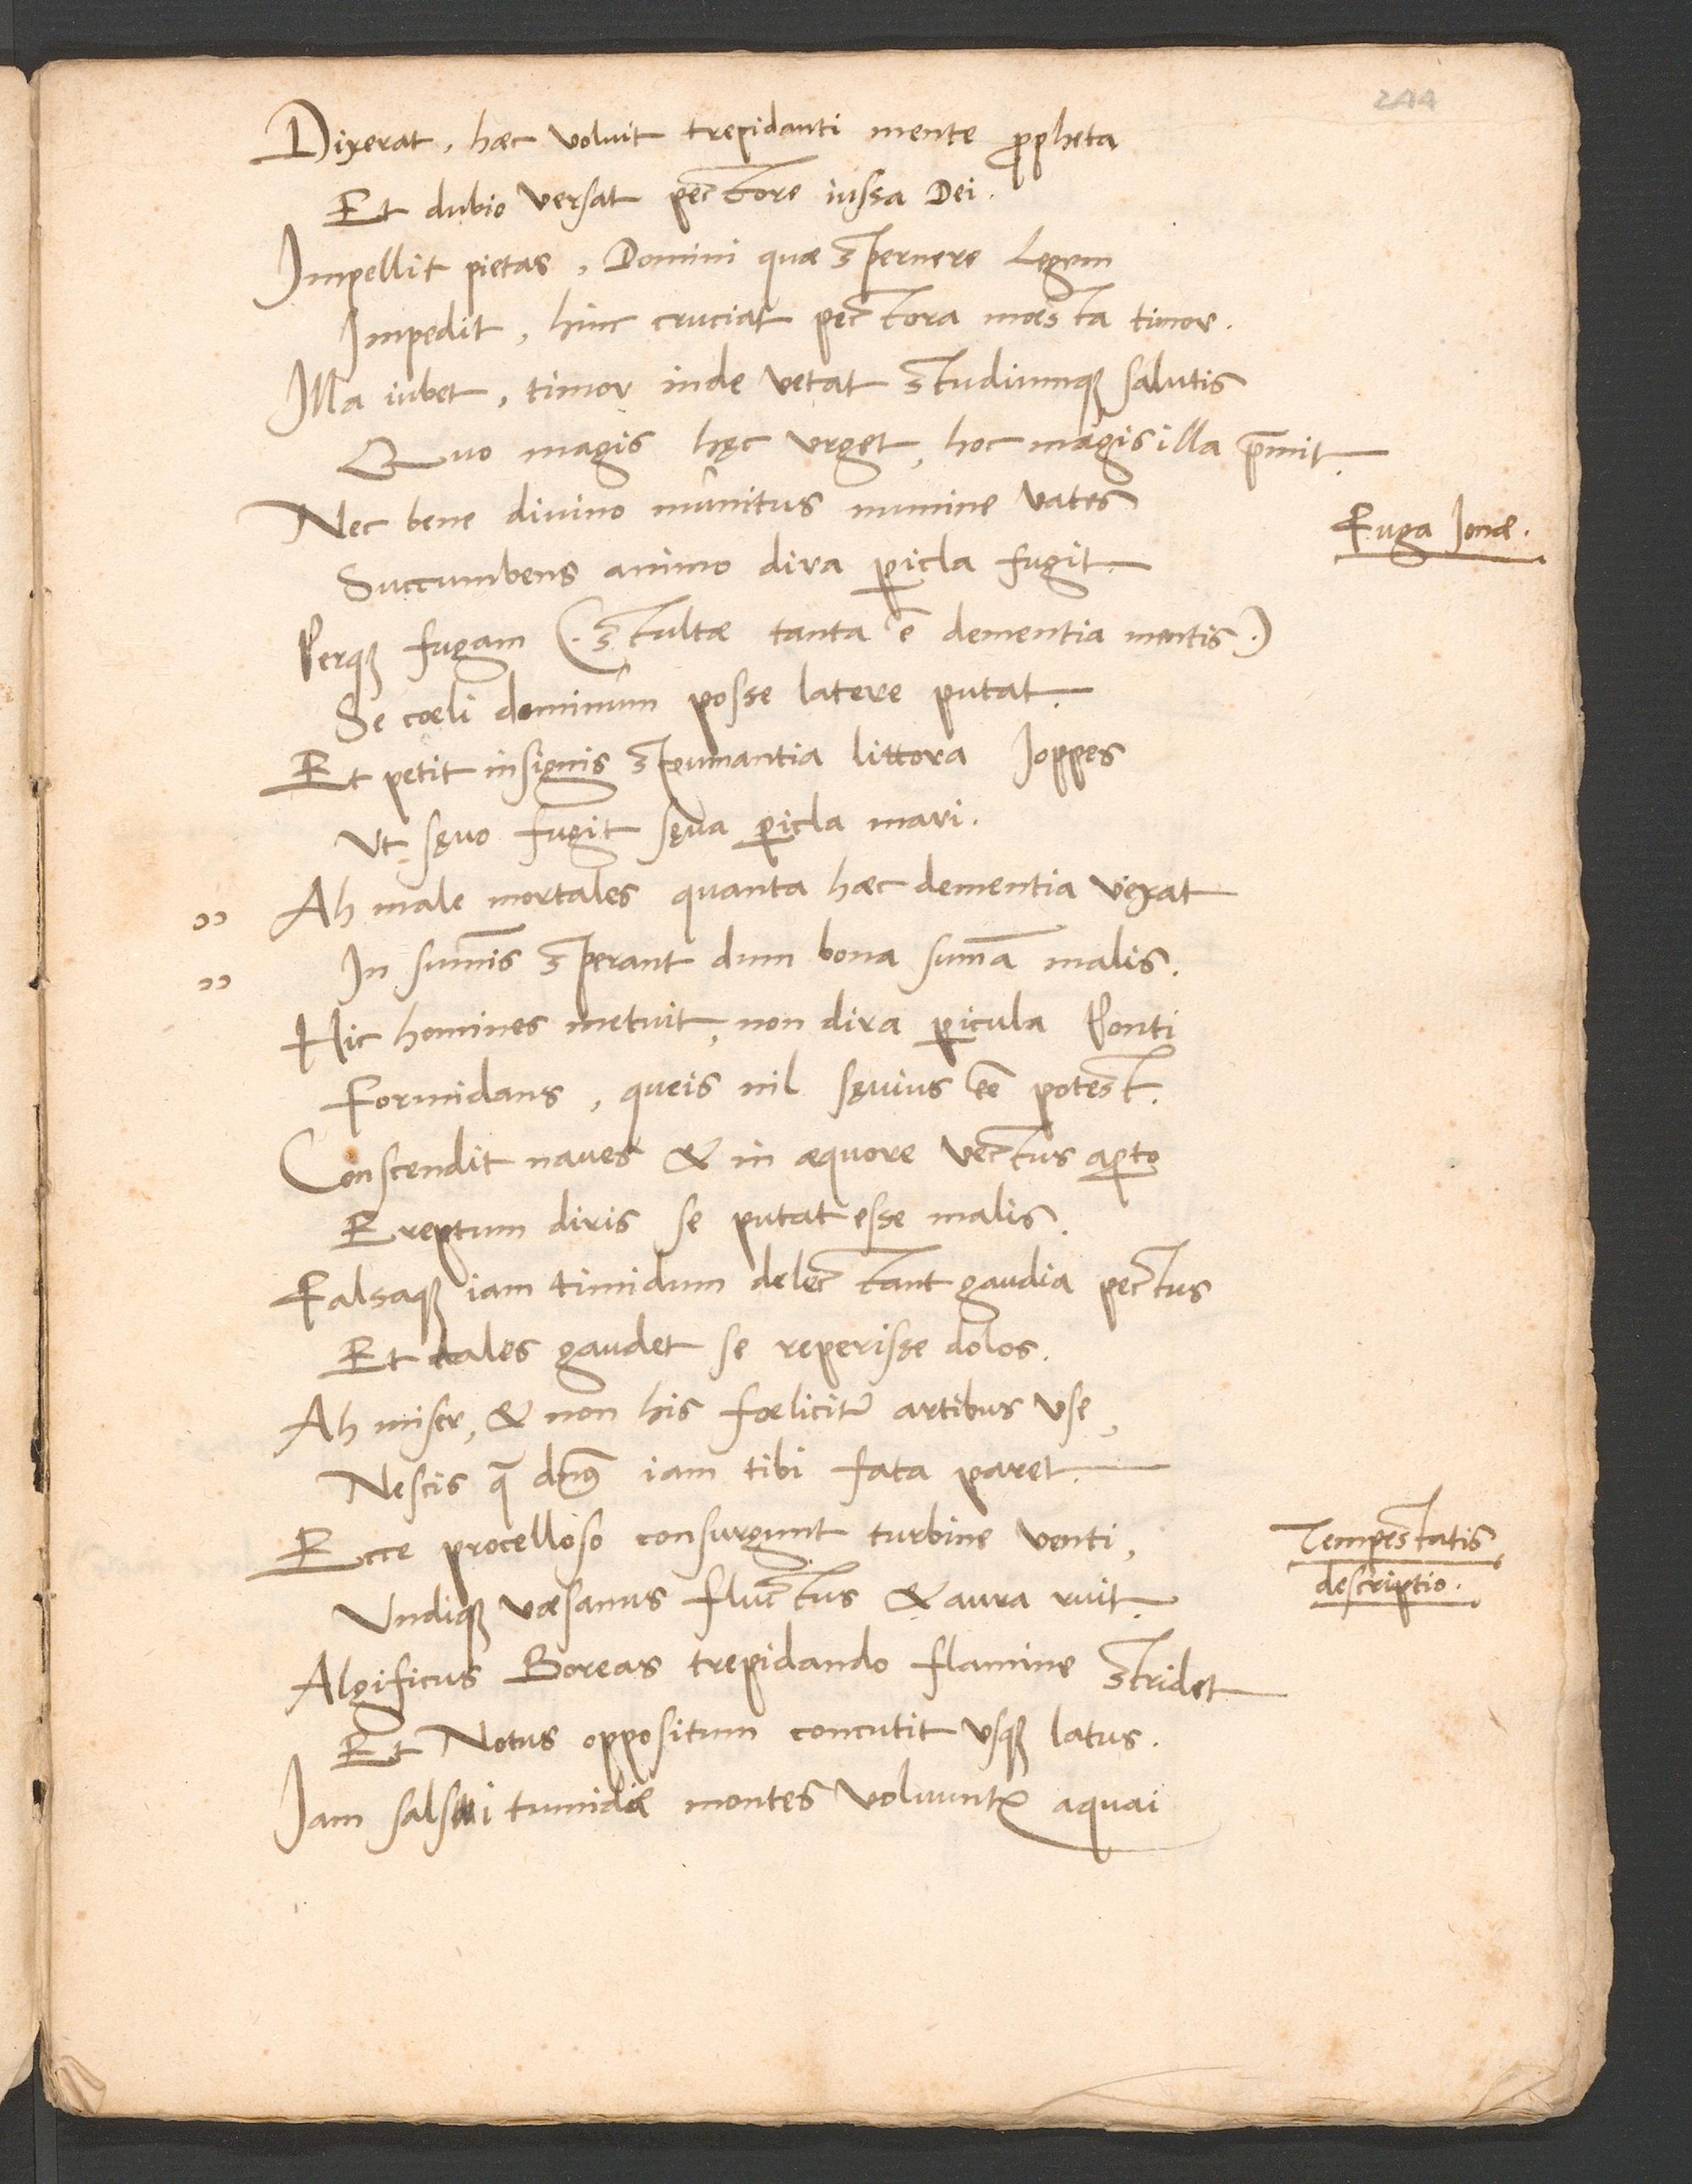 244
Dixerat, hæc voluit trepidanti mente ꝓpheta
Et dubio versat pectore iussa Dei.
Impellit pietas, Domini quæ spernere Legem
Impedit, hinc cruciat pectora mœsta timor.
Illa iubet, timor inde vetat studiumqꝫ salutis
Quo magis hęc urget, hoc magis illa p̄mit.
Nec bene divino munitus numine vates
Fuga Jonæ.
Succumbens animo dira ꝑicla fugit.
Perqꝫ fugam (. stultæ tanta ē dementia mentis.)
Se cœli dominum posse latere putat.
Et petit insignis spumantia littora Joppes
Ut sęvo fugit sęva ꝑicla mari.
" Ah male mortales quanta hæc dementia vexat
" In sum̄is sperant dum bona sum̄a malis.
Hic homines metuit, non dira ꝑicula Ponti
Formidans, queis nil sęvius ēe potest.
Conscendit naves & in æquore vectus aꝑto
Ereptum diris se putat esse malis.
Falsaqꝫ iam timidum delectant gaudia pectus
Et tales gaudet se reperisse dolos.
Ah miser, & non his fœlicitr̄ artibus use,
Nescis q̄ dn̄s iam tibi fata paret.
Ecce procelloso consurgunt turbine venti,
Tempestatis
descriptio.
Undiqꝫ væsanus fluctus & aura ruit.
Algificus Boreas trepidando flamine stridet
Et Notus oppositum concutit usqꝫ latus.
Jam salsæi tumidæ montes voluuntr̄ aquai